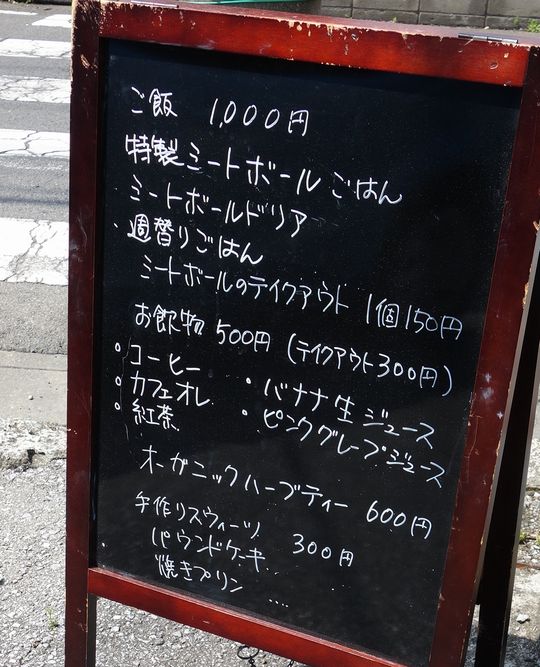 ご飯 1,000円
特製ミートボールごはん
ミートボールドリア
週替りごはん
ミートボールのテイクアウト 1個150円
お飲物 500円 (テイクアウト300円)
・コーヒー
・カフェオレ ・バナナ生ジュース
・紅茶 ・ピンクグレープジュース
オーガニックハーブティー 600円
手作りスウィーツ
パウンドケーキ 300円
焼きプリン ....